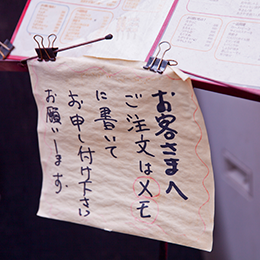 お客さまへ
ご注文はメモ
に書いて
お申し付け下さい
お願いします